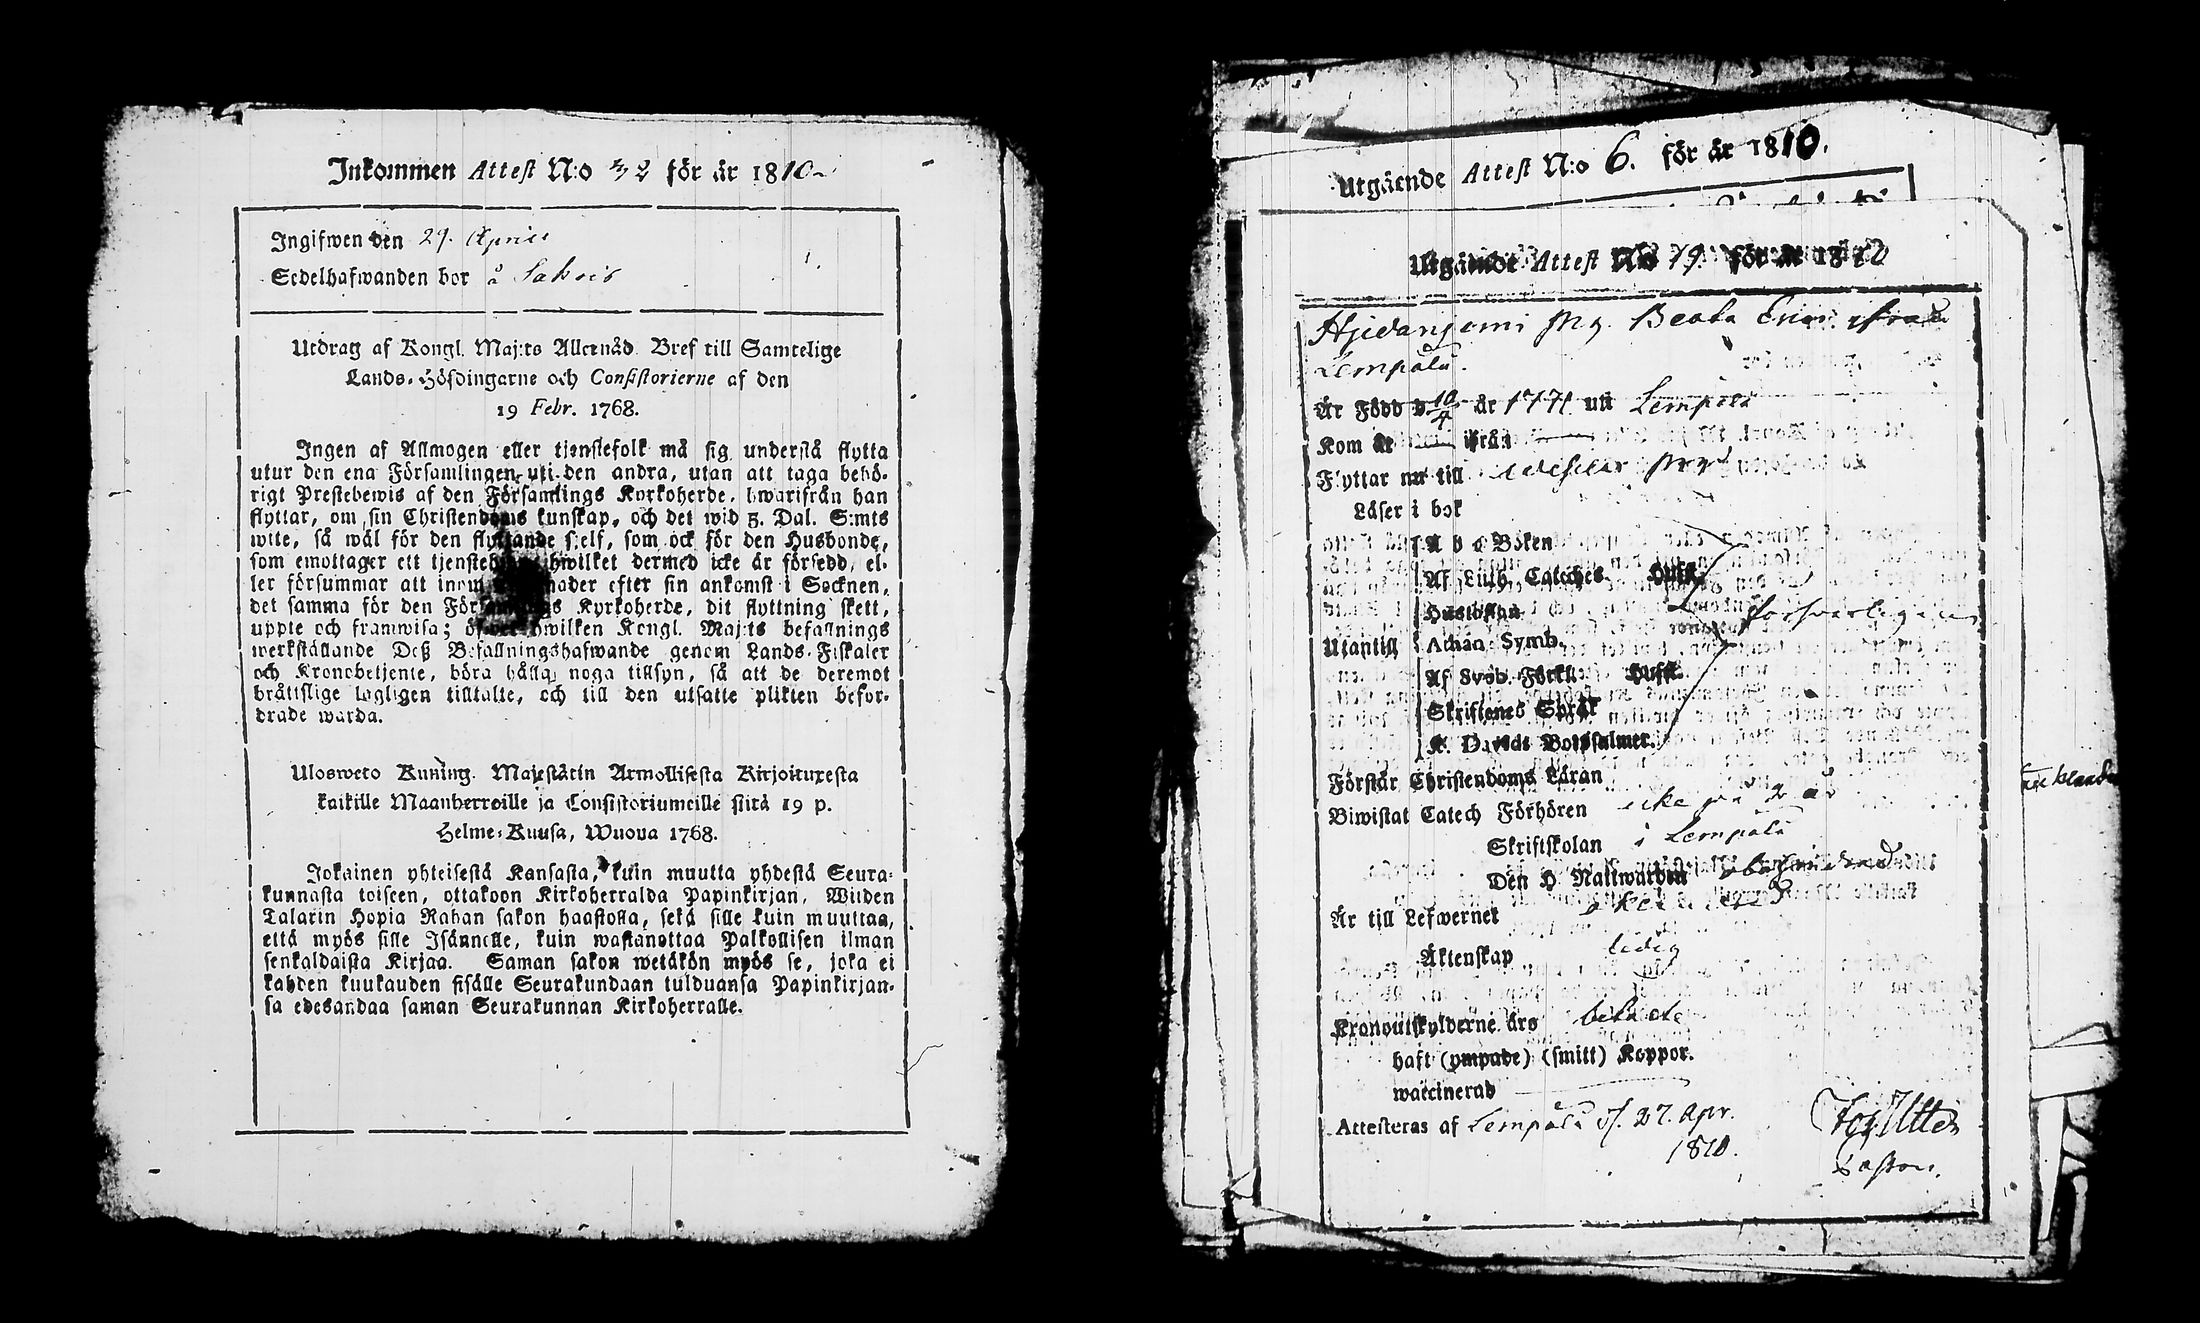 Inkommen Attest N:o 32 för år 1810
Ingifwen den 29. April
Sedelhafwanden bor å
Utdrag af Kongl. Maj:ts Allernåd. Bref till Samtelige
Lands-Höfdingarne och Consistorierne af den
19 Febr. 1768.
Ingen af Allmogen eller tjenstefolk må sig understå flytta
utur den ena Församlingen uti den andra, utan att taga behö-
rigt Prestebewis af den Församlings Kyrkoherde, hwarifrån han
flyttar, om sin Christendoms kunskap, och det wid 3. Dal. S:mts
wite, så wäl för den flyttande sjelf, som ock för den Husbonde,
som emottager ett tjenstehjon hwilket dermed icke är försedd, el-
ler försummar att inom månader efter sin ankomst i Socknen,
det samma för den Församlings Kyrkoherde, dit flyttning skett,
uppte och framwisa; öfwer hwilken Kongl. Maj:ts befallnings
werkställande Deß Befallningshafwande genom Lands-Fiskaler
och Kronobetjente, böra hålla noga tillsyn, så att de deremot
bråttslige lagligen tilltalte, och till den utsatte plikten befor-
drade warda.
Ulosweto Kuning. Majestätin Armollisesta Kirjoituxesta
kaikille Maanherroille ja Consistoriumeille siitä 19 p.
Helme-Kuusa, Wuona 1768.
Jokainen yhteisestä Kansasta, kuin muutta yhdestä Seura-
kunnasta toiseen, ottakoon Kirkoherralda Papinkirjan, Wiiden
Talarin Hopia Rahan sakon haastolla, sekä sille kuin muuttaa,
että myös sille Isännelle, kuin wastanottaa Palkollisen ilman
senkaldaista Kirjaa. Saman sakon wetäkön myös se, joka ei
kahden kuukauden sisälle Seurakundaan tulduansa Papinkirjan-
sa edesandaa saman Seurakunnan Kirkoherralle.
Utgående Attest N:o 6. för år 1810.
Utgående Attest N:o 79. för år 1810
Beata
Lempälä.
Är Född d 10/4 år 1771 uti Lempälä
Kom år ifrån
Flyttar nu till
Läser i bok
A b c Boken
Af Luth. Cateches. Hufst.
Hustaflan
försvarligen
Utantill Athan. Symb.
Af Sveb. Förkl. Hufst.
Skriftenes Språk
K. Davids Botpsalmer.
Förstår Christendoms Läran
Biwistat Catech Förhören icke på 2 år
Skriftskolan i Lempälä
Den H. Nattwarden
Är till Lefwernet
Äktenskap ledig
Kronoutskylderne års betalt
haft (ympade) (smitt) Koppor.
waccinerad
Attesteras af Lempälä d. 27. Apr.
1810.
Pastor.